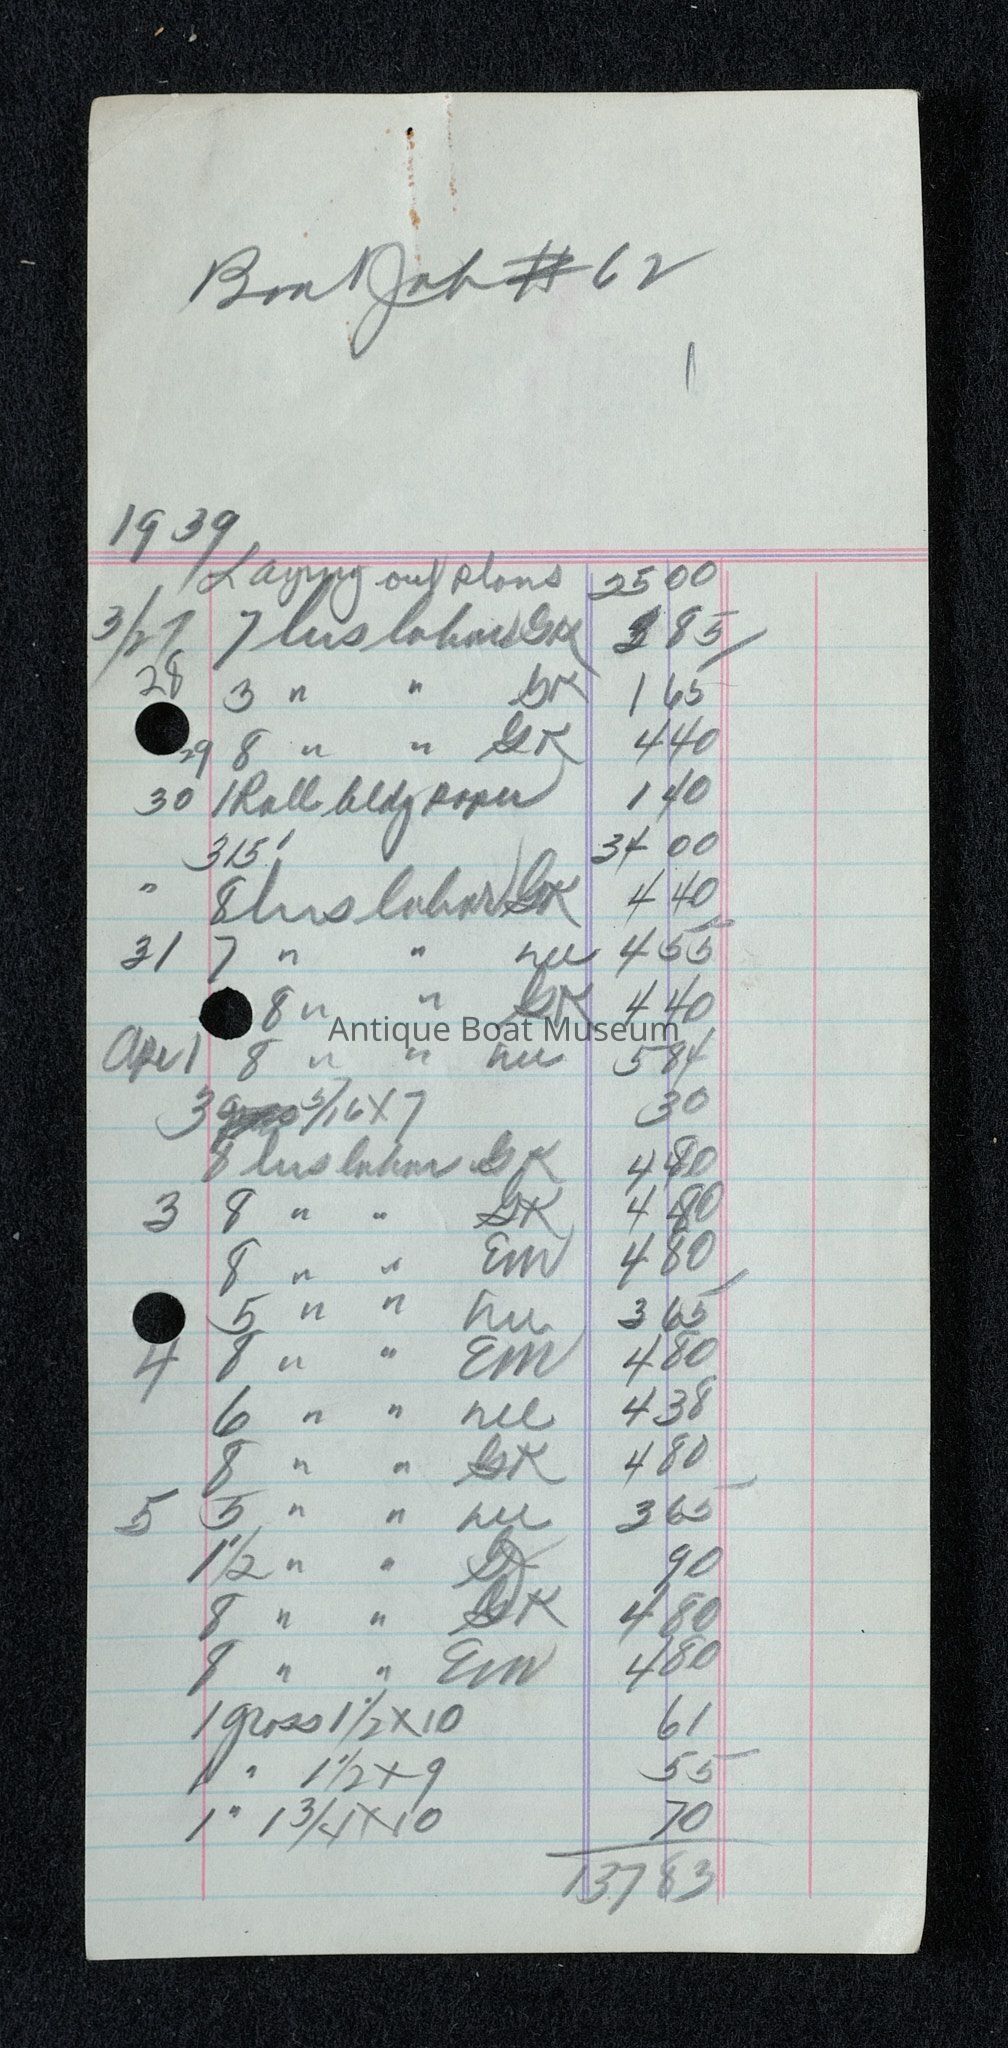 Boat Job # 62
1
1939
Laying out plans 25 00
3/27 7 hrs labor GK 3 85
28 3 " " GK 1 65
29 8 " " GK 4 40
30 1 Roll bldg paper 1 40
315' 34 00
" 8 hrs labor GK 4 40
31 7 " " 4 55
8 " " GK 4 40
Antique Boat Museum
Apr 1 8 " " 5 84
3 5/16 x 7 30
8 hrs labor GK 4 80
3 8 " " GK 4 80
8 " " EM 4 80
5 " " 3 65
4 8 " " EM 4 80
6 " " 4 38
8 " " GK 4 80
5 5 " " 3 65
1 1/2 " " 90
8 " " GK 4 80
8 " " EM 4 80
1 gross 1 1/2 x 10 61
1 " 1 1/2 x 9 55
1 " 1 3/4 x 10 70
137 83